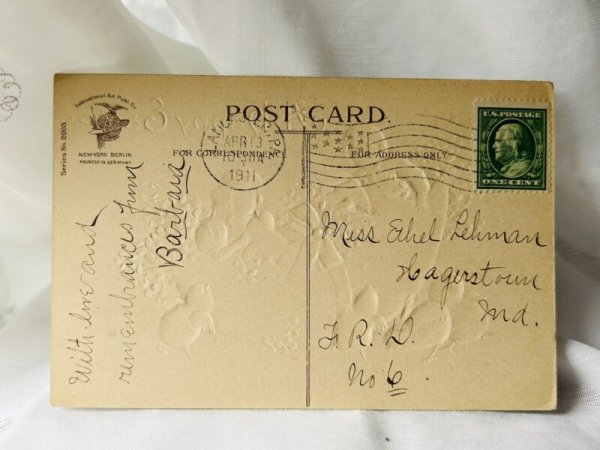 International Art Publ. Co.
NEW-YORK BERLIN
PRINTED IN GERMANY
Series No. 2003
POST CARD.
FOR CORRESPONDENCE
FOR ADDRESS ONLY
LANCASTER, PA.
APR 13
1911
U.S. POSTAGE
ONE CENT
With love and
remembrances from
Barbara
Miss Ethel Lehman
Hagerstown
Md.
F. R. D.
No 6.